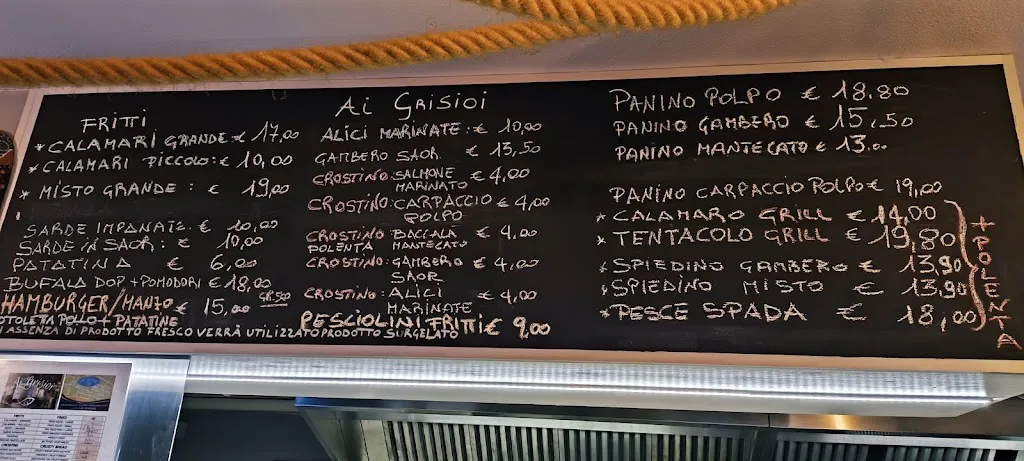 FRITTI
* CALAMARI GRANDE: € 17,00
* CALAMARI PICCOLO: € 10,00
* MISTO GRANDE : € 19,00
SARDE IMPANATE. € 10,00
SARDE IN SAOR: € 10,00
PATATINA € 6,00
BUFALA DOP + POMODORI € 18,00
HAMBURGER/MANZO € 15,00 GR.500
TOLETA POLLO + PATATINE
ASSENZA DI PRODOTTO FRESCO VERRÀ UTILIZZATO PRODOTTO SURGELATO
Ai GRISIOI
ALICI MARINATE: € 10,00
GAMBERO SAOR. € 13,50
CROSTINO: SALMONE MARINATO € 4,00
CROSTINO: CARPACCIO POLPO € 4,00
CROSTINO BACCALÀ € 4,00
POLENTA MANTECATO
CROSTINO: GAMBERO € 4,00
SAOR
CROSTINO: ALICI € 4,00
MARINATE
PESCIOLINI FRITTI € 9,00
PANINO POLPO € 18.80
PANINO GAMBERO € 15,50
PANINO MANTECATO € 13.00
PANINO CARPACCIO POLPO € 19,00
* CALAMARO GRILL € 14,00
* TENTACOLO GRILL € 19,80
* SPIEDINO GAMBERO € 13,90
* SPIEDINO MISTO € 13,90
* PESCE SPADA € 18,00
+ POLENTA